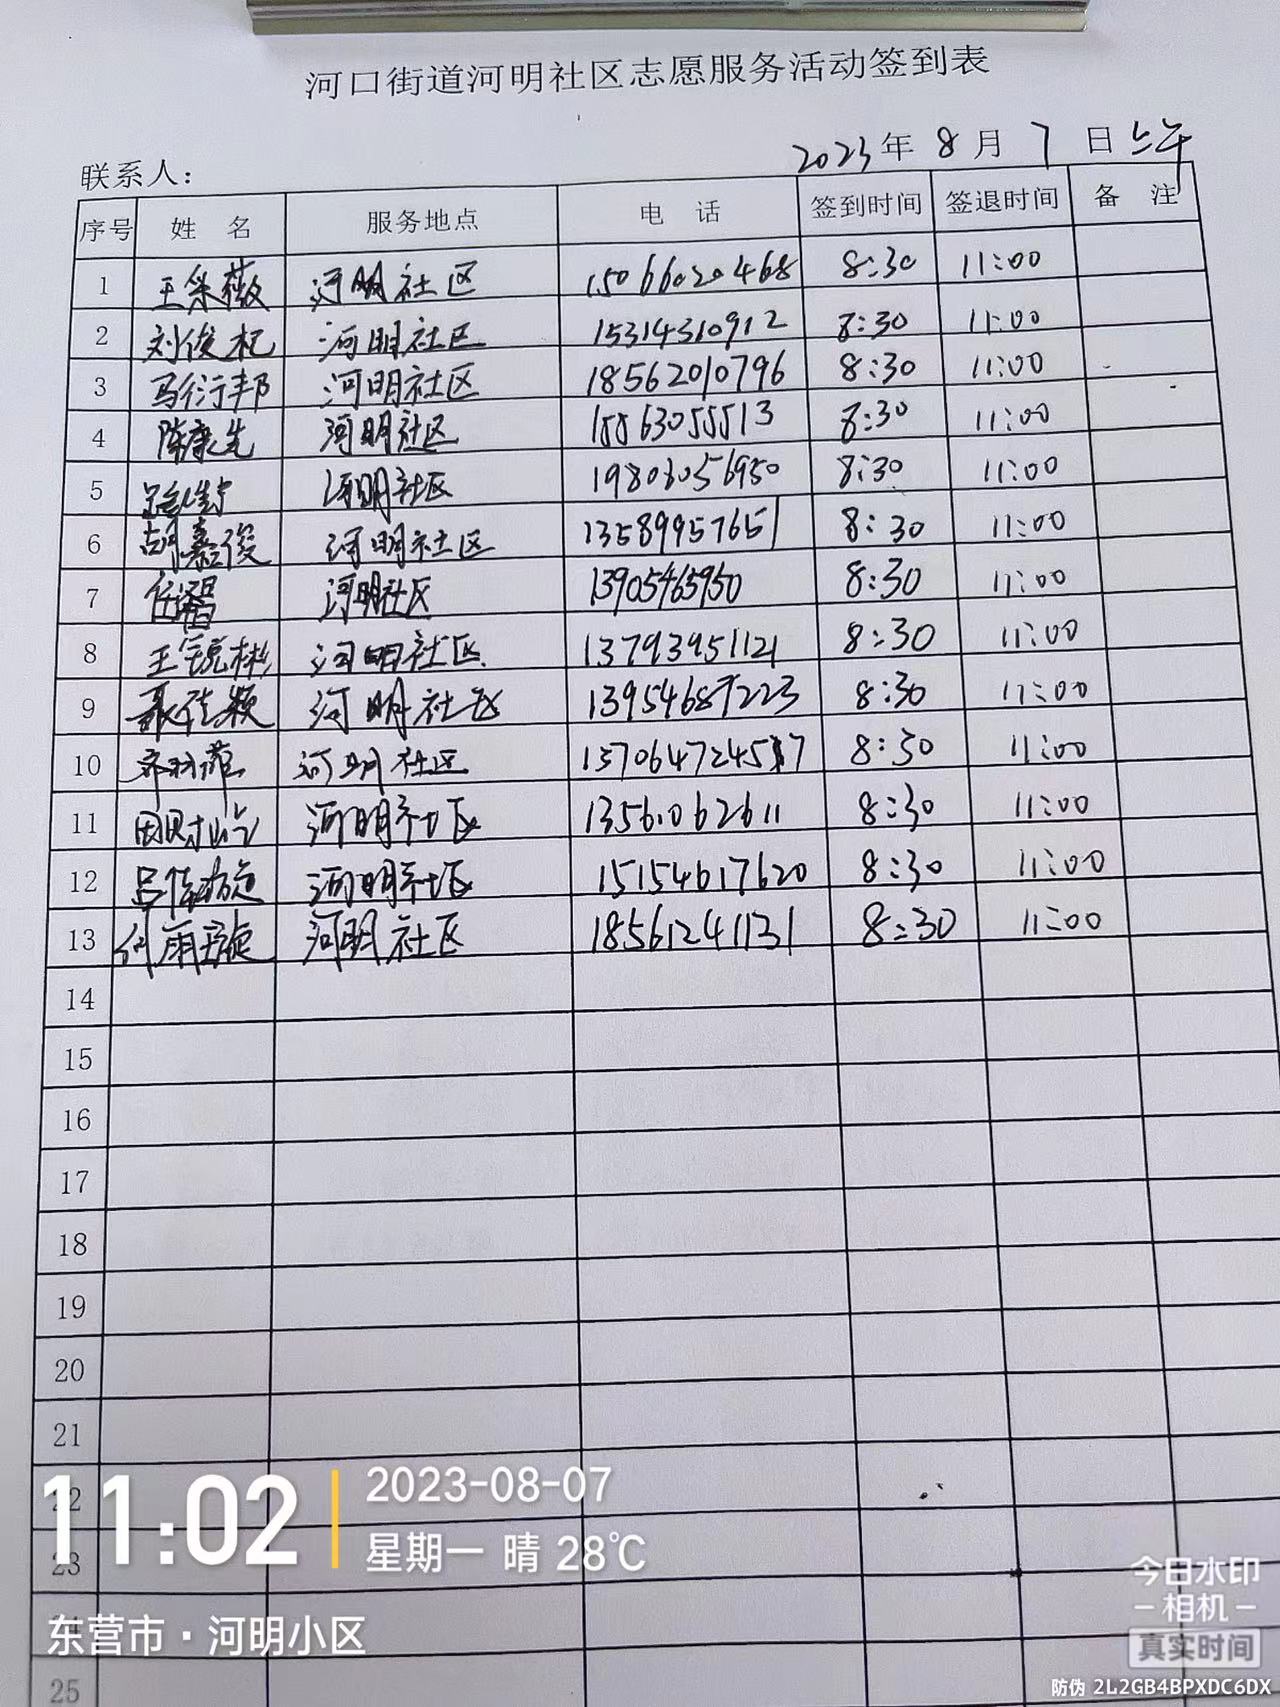 河口街道河明社区志愿服务活动签到表
联系人： 2023年8月7日上午
序号 姓名 服务地点 电话 签到时间 签退时间 备注
1 王采薇 河明社区 15066020468 8:30 11:00
2 刘俊杞 河明社区 15314310912 8:30 11:00
3 马衍邦 河明社区 18562010796 8:30 11:00
4 陈康先 河明社区 15563055513 8:30 11:00
5 河明社区 19803056950 8:30 11:00
6 胡嘉俊 河明社区 13589957651 8:30 11:00
7 河明社区 13905465950 8:30 11:00
8 王锐彬 河明社区 13793951121 8:30 11:00
9 聂佳颖 河明社区 13954687223 8:30 11:00
10 河明社区 8:30 11:00
11 河明社区 13561062611 8:30 11:00
12 河明社区 15154617620 8:30 11:00
13 何雨璇 河明社区 18561241131 8:30 11:00
14
15
16
17
18
19
20
21
22
23
24
25
11:02
2023-08-07
星期一 晴 28℃
东营市·河明小区
今日水印
相机
真实时间
防伪 2L2GB4BPXDC6DX